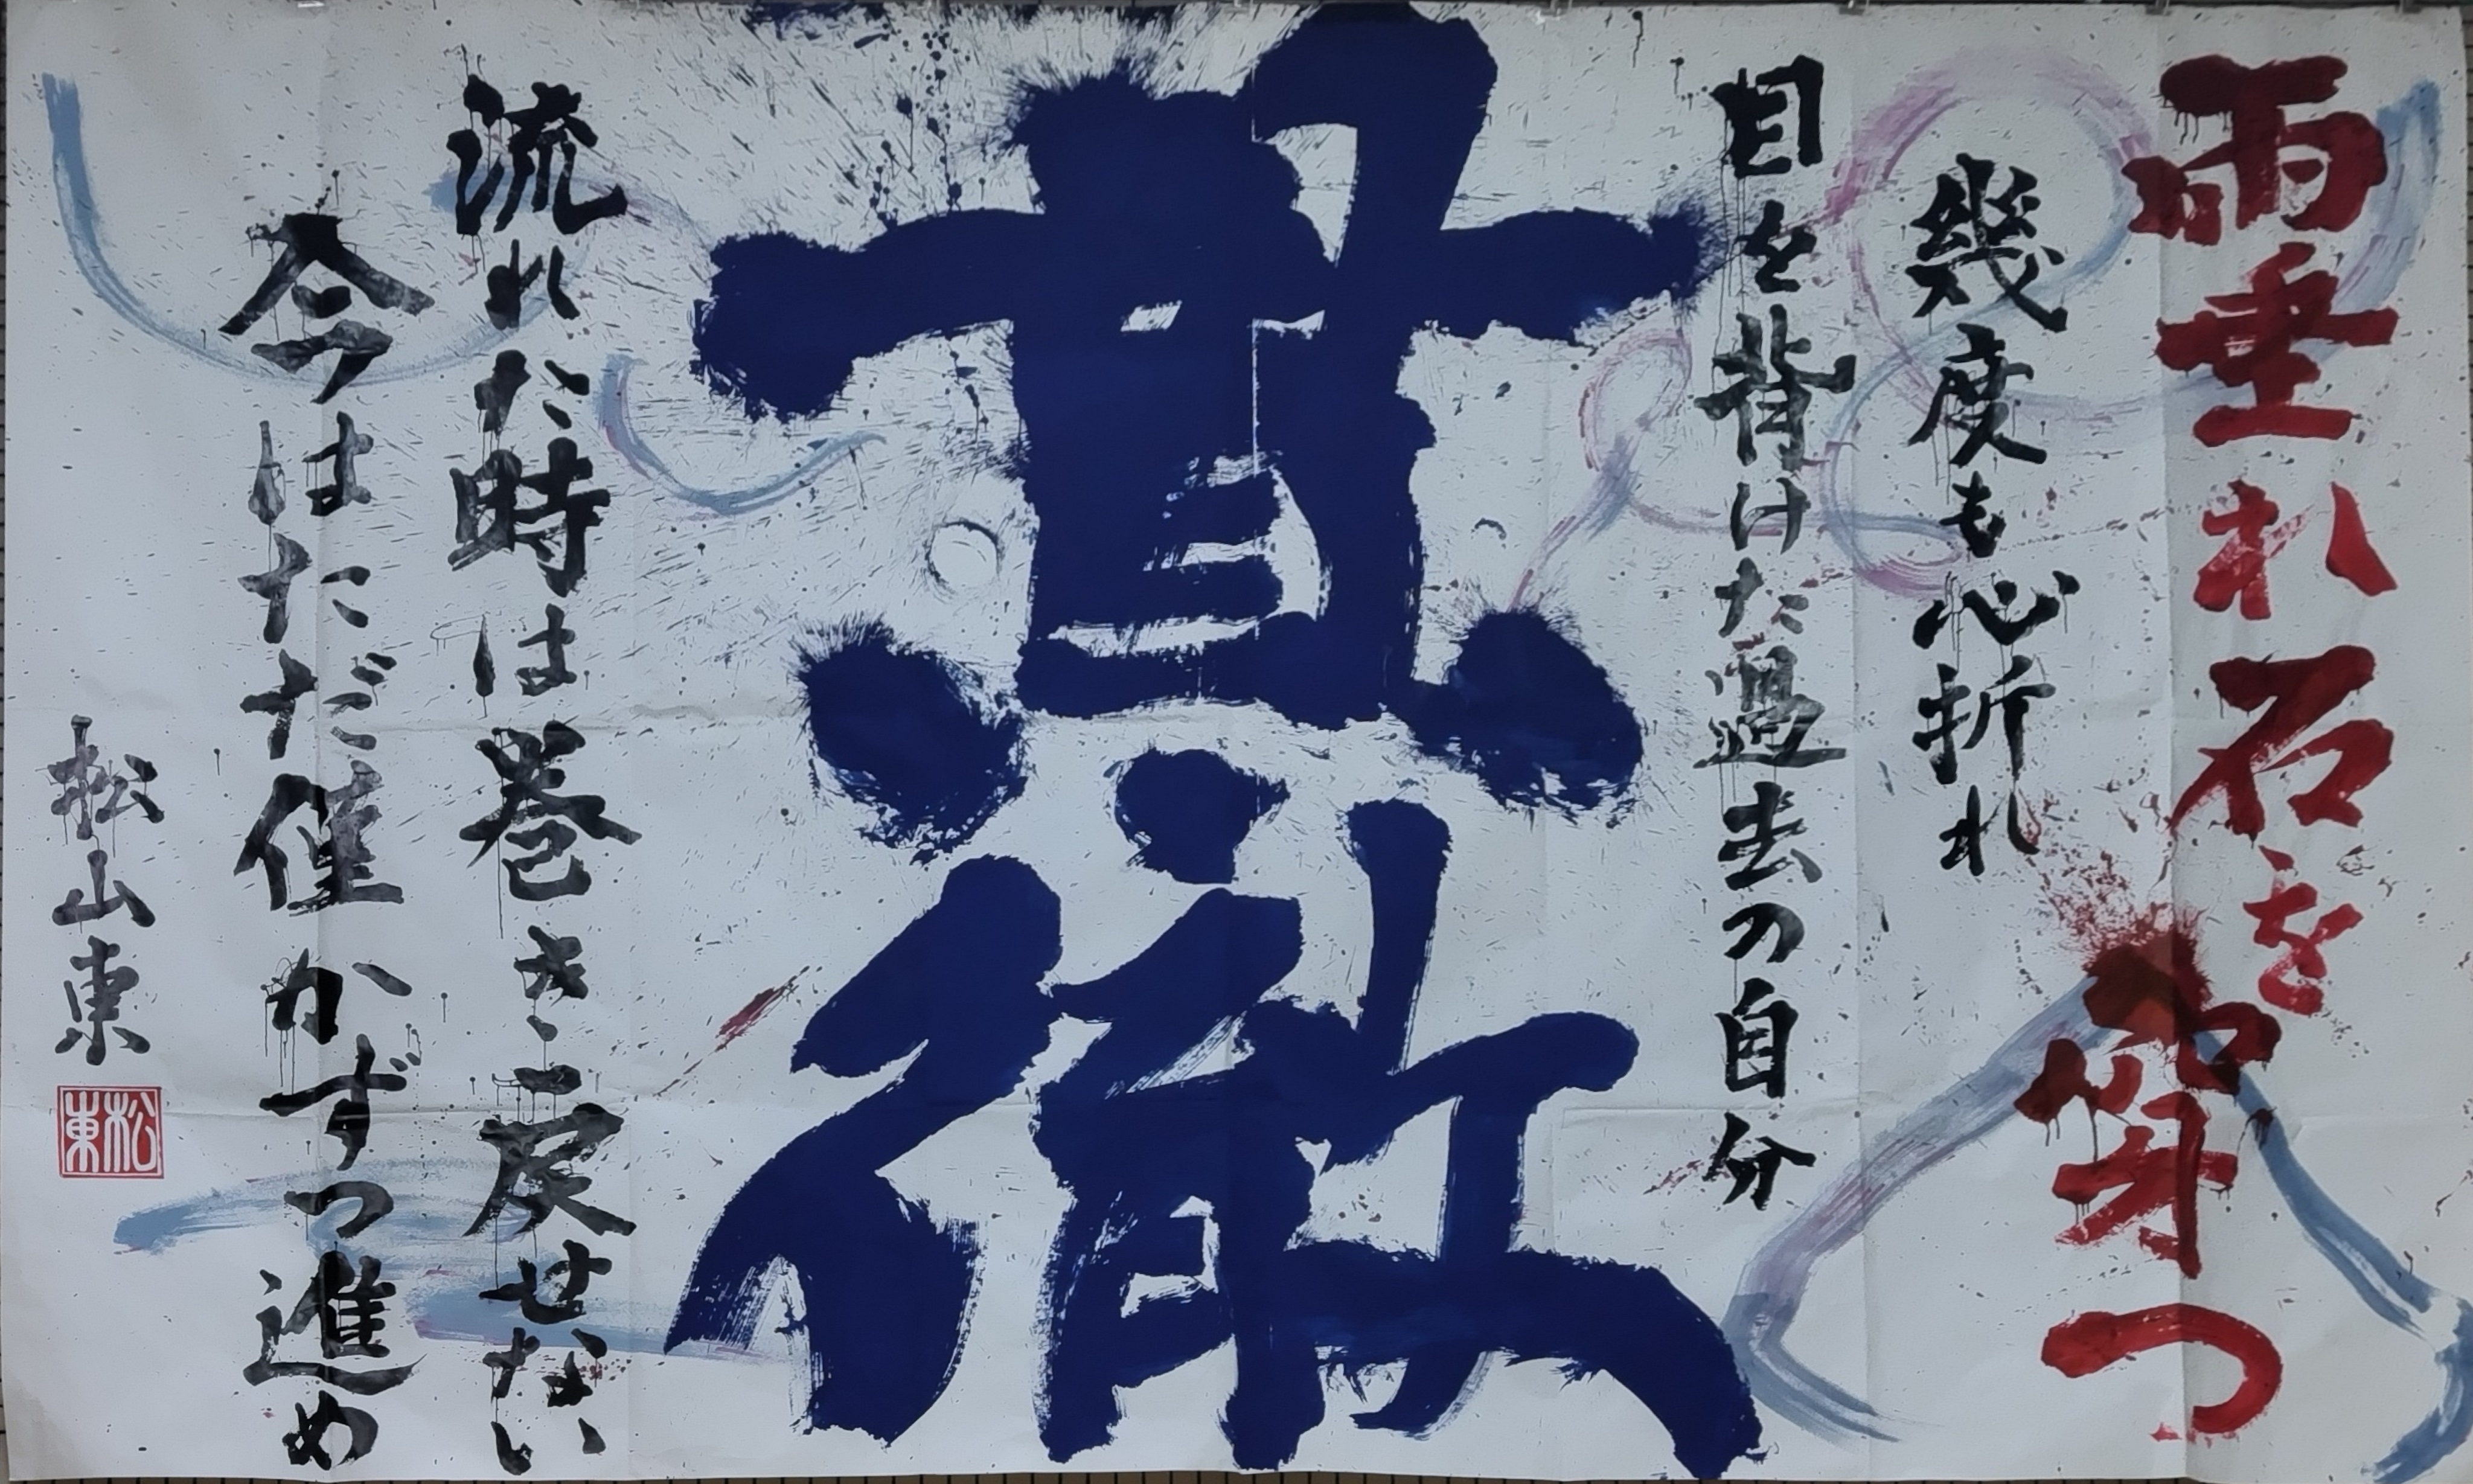 雨垂れ石を穿つ
幾度も心折れ
目を背けた過去の自分
貫徹
流れた時は巻き戻せない
今はただ僅かずつ進め
松山東
松東